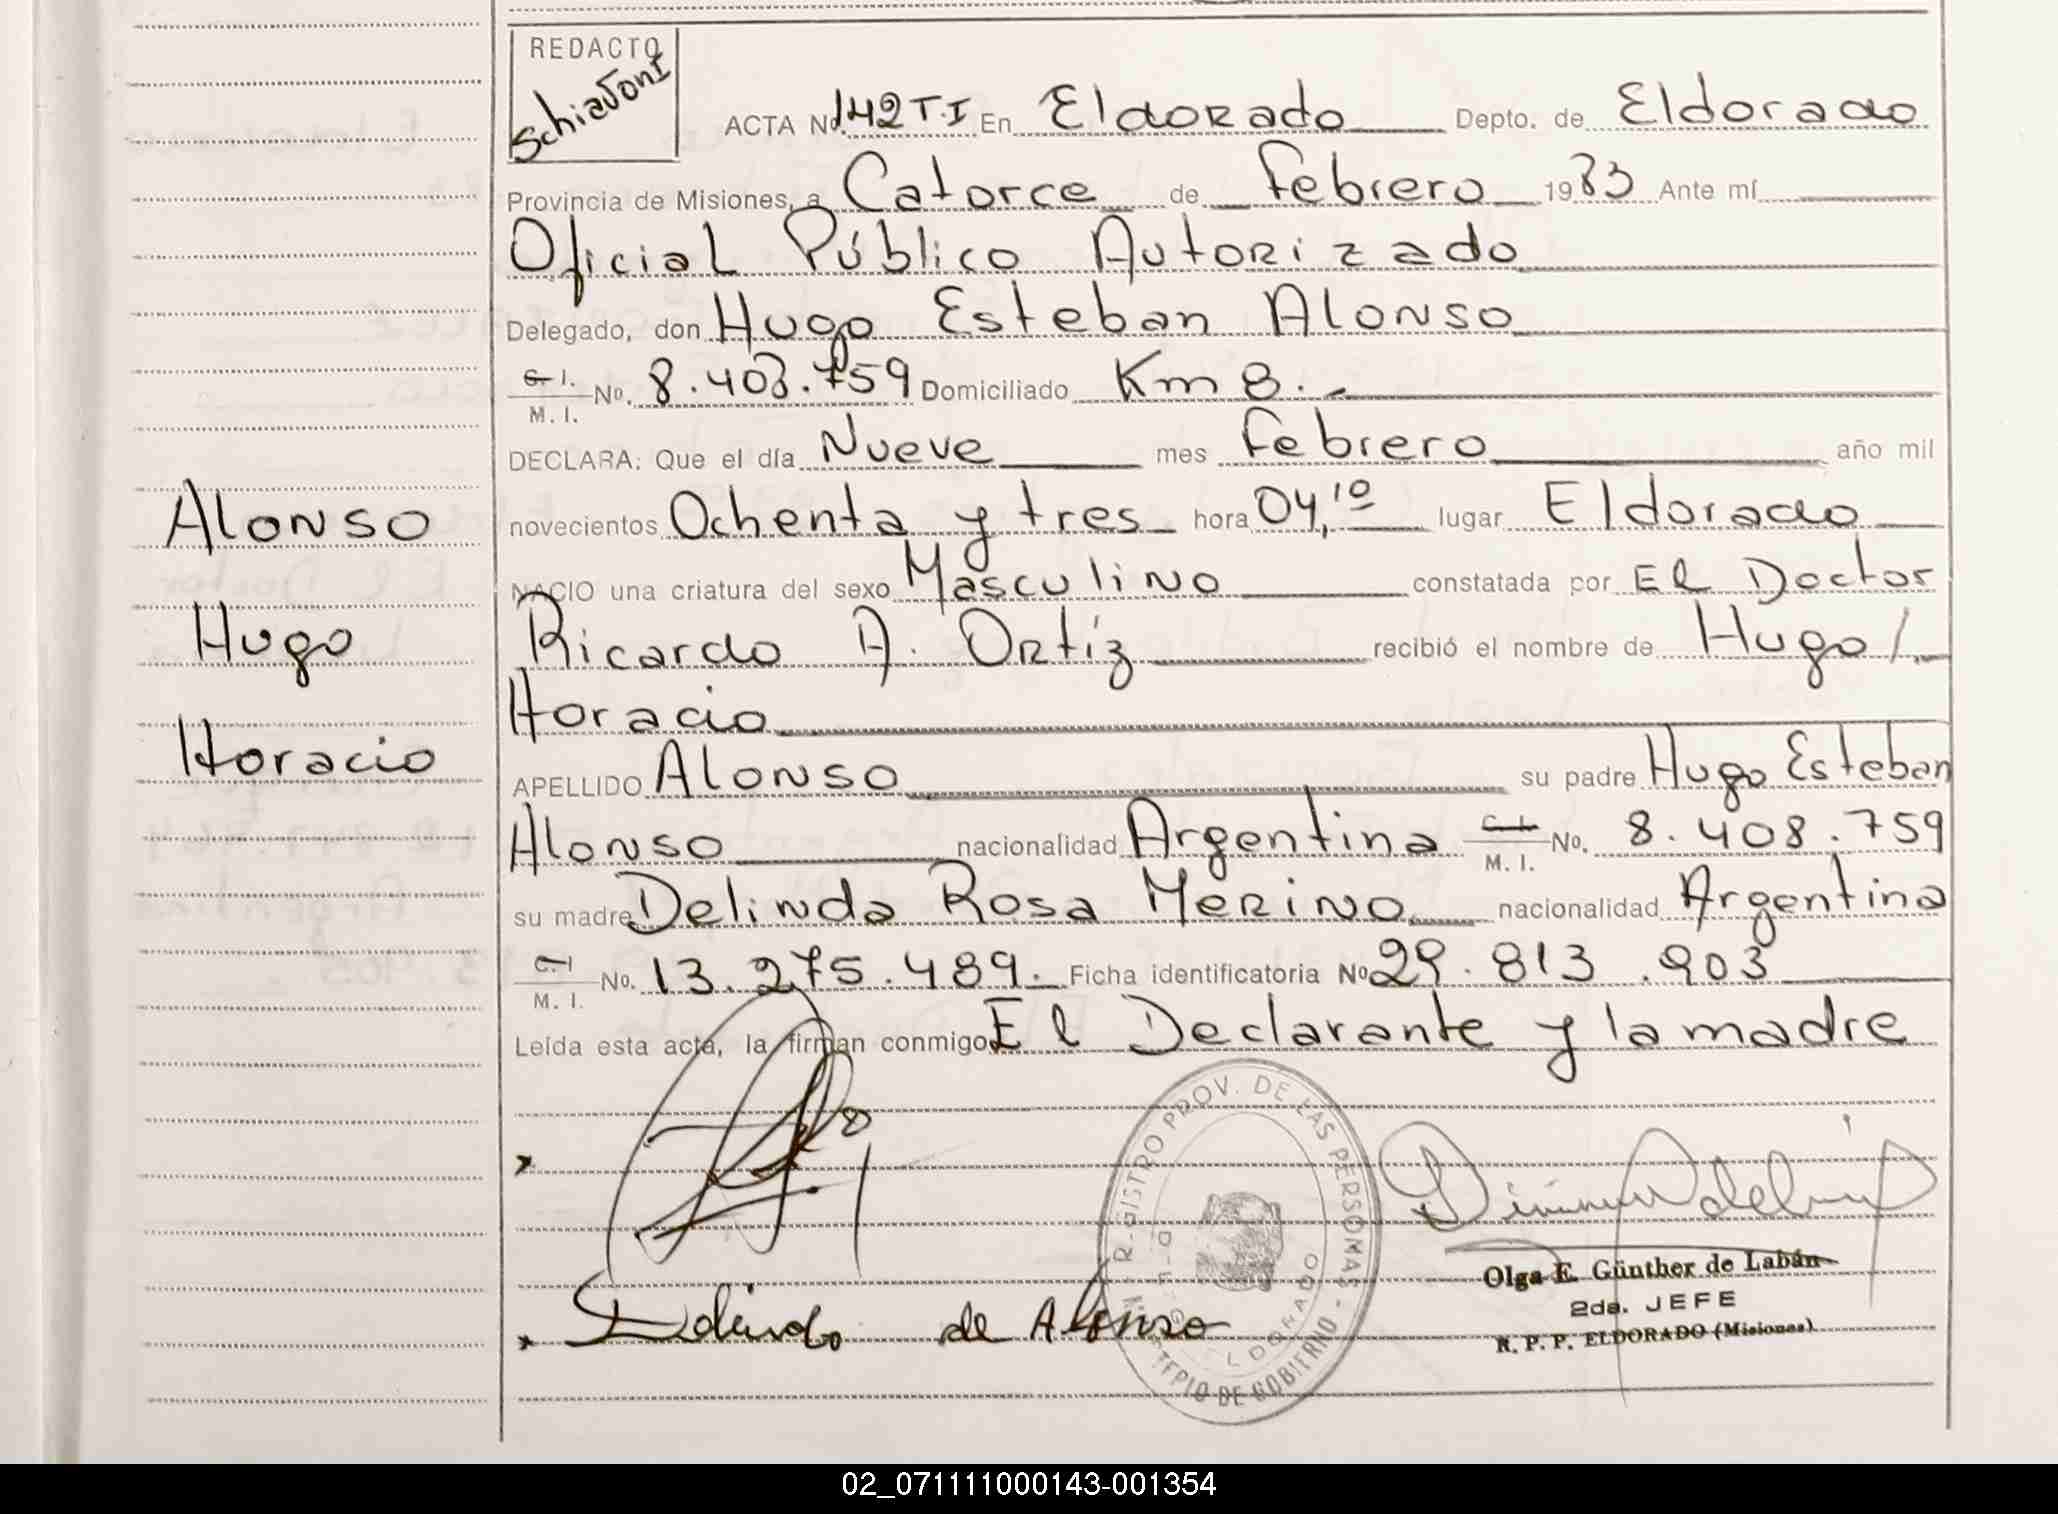 REDACTO
Schiavoni
ACTA No. 142 T.I En Eldorado Depto. de Eldorado
Provincia de Misiones, a Catorce de Febrero 1983 Ante mí
Oficial Público Autorizado
Delegado, don Hugo Esteban Alonso
C. I. M. I. No. 8.408.759 Domiciliado Km 8.
DECLARA: Que el día Nueve mes Febrero año mil
Alonso
novecientos Ochenta y tres hora 04,10 lugar Eldorado
NACIO una criatura del sexo Masculino constatada por El Doctor
Hugo
Ricardo A. Ortiz recibió el nombre de Hugo/.
Horacio
Horacio
APELLIDO Alonso su padre Hugo Esteban
Alonso nacionalidad Argentina C. I. M. I. No. 8.408.759
su madre Delinda Rosa Merino nacionalidad Argentina
C. I M. I. No. 13.275.489. Ficha identificatoria No 29.813.903
Leída esta acta, la firman conmigo El Declarante y la madre
REGISTRO PROV. DE LAS PERSONAS
ELDORADO
DE GOBIERNO
Olga E. Günther de Labán
2da. JEFE
R. P. P. ELDORADO (Misiones)
Delinda de Alonso
02_071111000143-001354